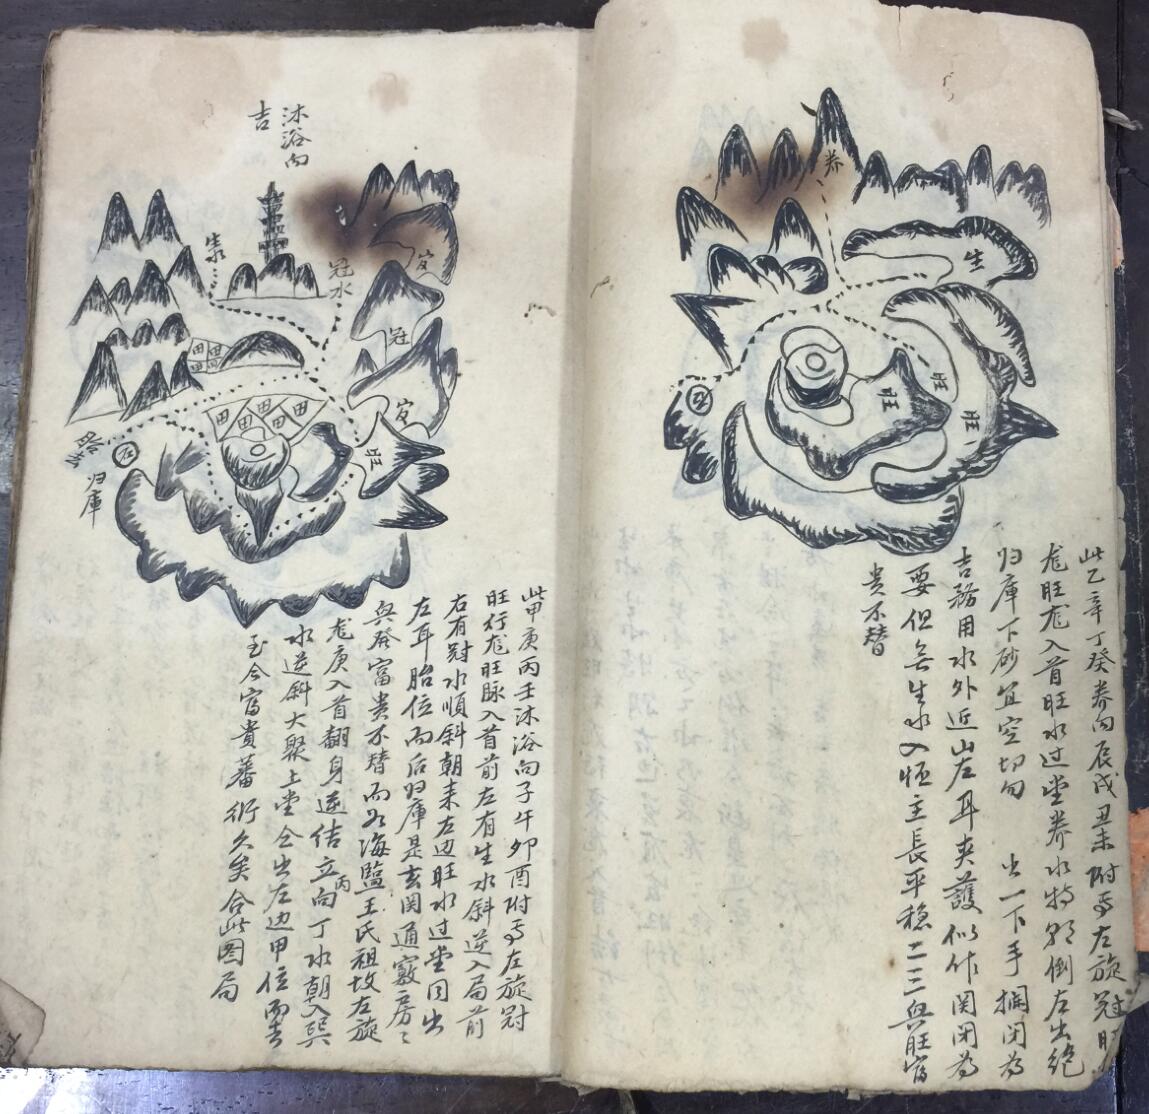 养
生
旺
旺
旺
此乙辛丁癸养向辰戌丑未附焉左旋冠旺
龙旺龙入首旺水过堂养水特朝倒左出绝
归库下砂宜空切勿出一下手拦闭为
吉務用水外近山左耳夹護似作関闭为
要但無生水入怄主長平稳二三興旺富
贵不替
沐浴向
吉
冠水
官
冠
官
旺
田田
田田
田田田
田田
归庫
此甲庚丙壬沐浴向子午卯酉附焉左旋冠
旺行龙旺脉入首前左有生水斜逆入局前
右有冠水順斜朝来左边旺水过堂同出
左耳胎位而后归庫是玄関通竅房〻
興發富貴不替而如海監王氏祖坟左旋
龙庚入首翻身逆结立丙向丁水朝入巽
水逆斜大聚上堂仝出左边甲位而去
至今富貴蕃衍久矣合此图局